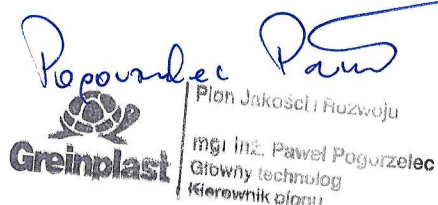 Pogorzelec Paweł
Greinplast
Pion Jakości i Rozwoju
mgr inż. Paweł Pogorzelec
Główny technolog
Kierownik pionu